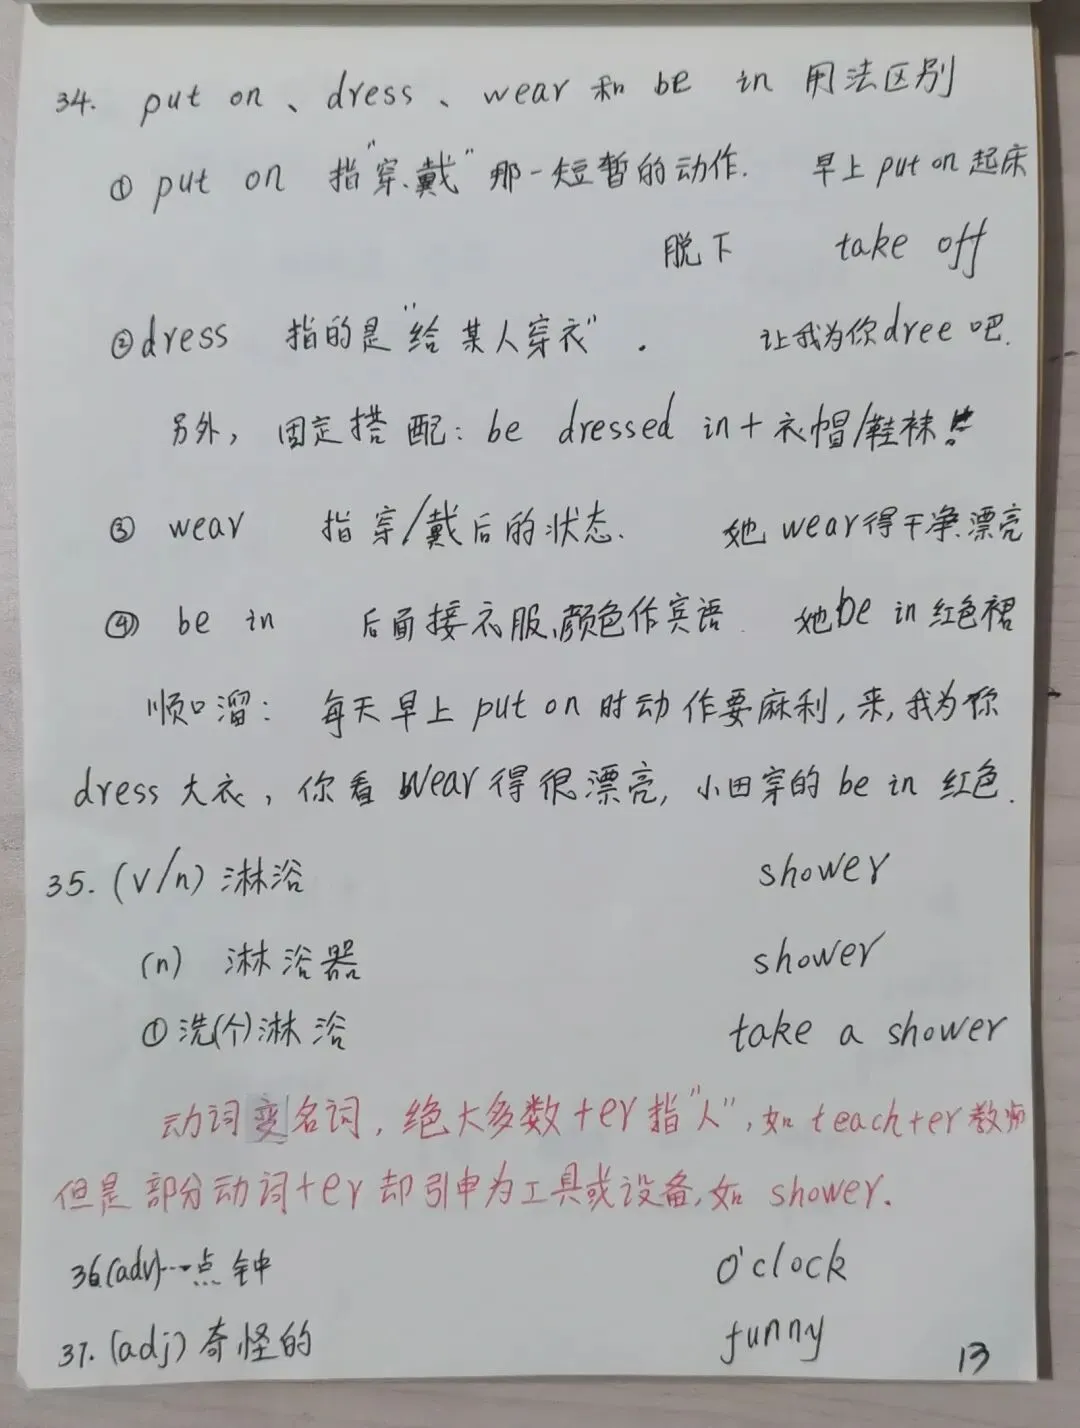 34. put on、dress、wear 和 be in 用法区别
① put on 指"穿、戴"那一短暂的动作. 早上 put on 起床
脱下 take off
②dress 指的是"给某人穿衣". 让我为你dree吧.
另外, 固定搭配: be dressed in+衣帽/鞋袜!
③ wear 指穿/戴后的状态. 她 wear得干净.漂亮
④ be in 后面接衣服、颜色作宾语. 她be in 红色裙
顺口溜: 每天早上 put on 时动作要麻利, 来, 我为你
dress 大衣, 你看 wear得很漂亮, 小田穿的 be in 红色.
35. (v/n) 淋浴 shower
(n) 淋浴器 shower
①洗(个)淋浴 take a shower
动词变名词, 绝大多数+er指"人", 如teach+er教师
但是部分动词+er却引申为工具或设备, 如 shower.
36.(adv)…点钟 o'clock
37. (adj) 奇怪的 funny
13